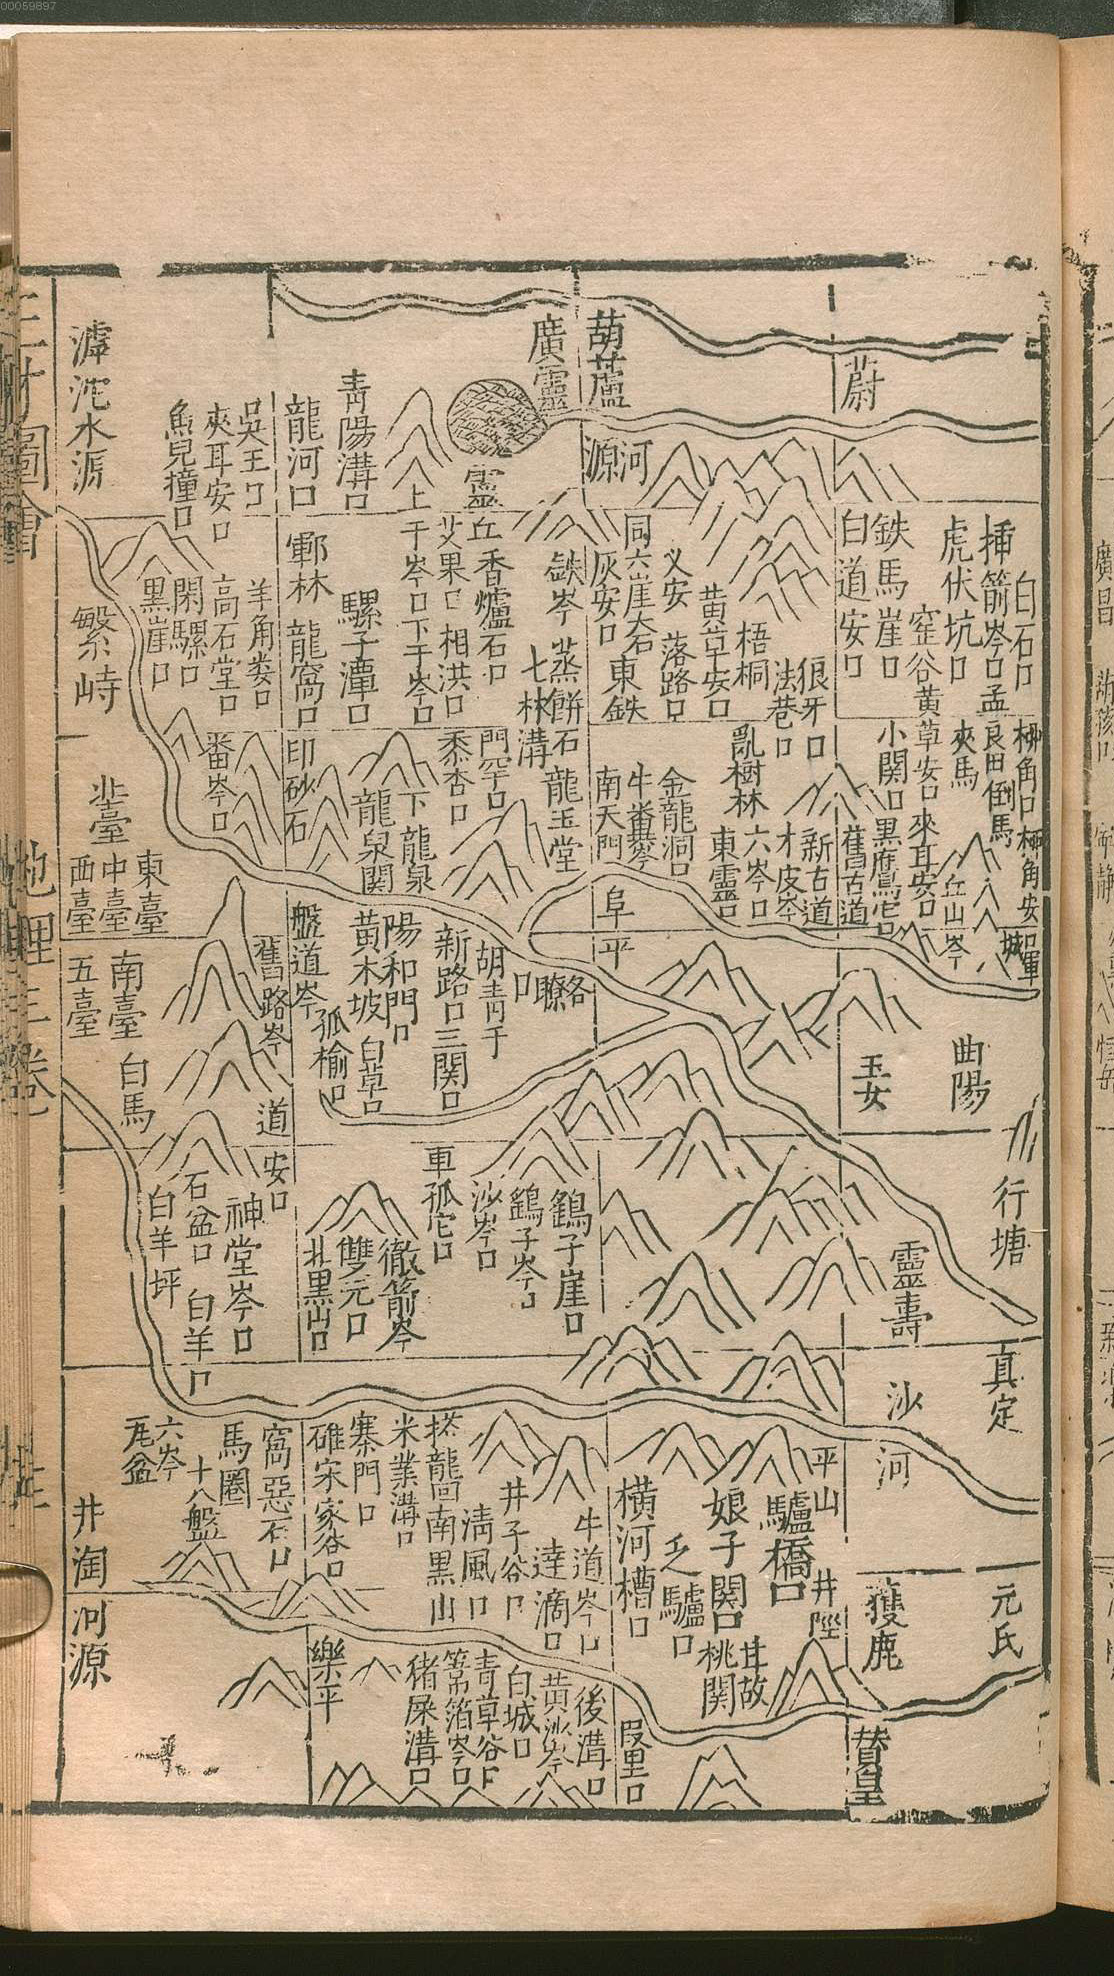 00059897
蔚
白石口
插箭岺口孟
良田
虎伏坑口
夾馬
倒馬
窑谷黄
草安口來耳安口
鉄馬崖口
小関口
白道安口
城
丘山岺
舊古道
新古道
葫蘆
河
源
廣靈
靈
丘
狼牙口
法巷口
梧桐
亂樹林
黄草安口
义安
落路口
同六崖大石
灰安口
東鉄
才皮岺
六岺口
東靈口
金龍洞口
南天門
鉄岺
蒸餅
石龍玉堂
七林溝
香爐石口
門罕口
艾果口
相洪口
黍杏口
上
干岺口下干岺口
下龍泉
龍泉関
青陽溝口
騾子潭口
龍河口
鄆林
龍窩口
印砂石
吳王口
羊角娄口
夾耳安口
高石堂口
番岺口
魚兒撞口
閑騾口
黒崖口
滹沱水源
繁峙
北臺
東臺
中臺
西臺
南臺
五臺
白馬
阜平
曲陽
玉女
行塘
靈壽
真定
沙河
胡青于
口
新路口三関口
陽和門口
黄木坡
白草口
盤道岺
孤榆口
舊路岺
道
安口
鷂子崖口
鷂子岺口
沙岺口
車孤庀口
徹箭岺
雙元口
北黒山口
神堂岺口
石盆口
白羊口
白羊坪
平山
驢橋口
井陘
娘子関口
桃関
井故
乏驢口
横河槽口
獲鹿
元氏
贊皇
牛道岺口
逹滴口
井子谷口
清風口
南黒山
米業溝口
寨門口
碓宋家谷口
窩惡石口
馬圈
十八盤
六岺
井淘河源
樂平
後溝口
黄沙岺
白城口
青草谷口
箔岺口
猪屎溝口
三才圖會
地理三卷